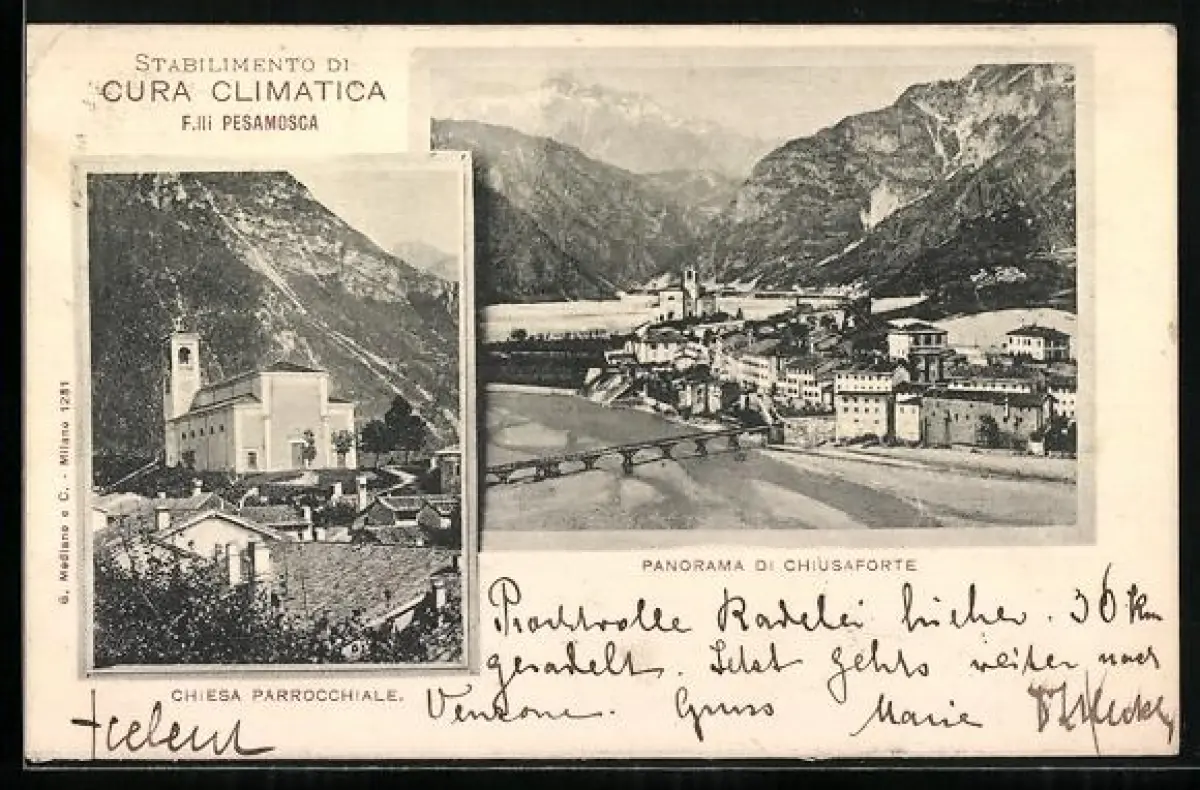 STABILIMENTO DI
CURA CLIMATICA
F.lli PESAMOSCA
G. Modiano e C. - Milano 1231
PANORAMA DI CHIUSAFORTE
CHIESA PARROCCHIALE.
Prachtvolle Radelei hieher. 36 Km
geradelt. Jetzt gehts weiter nach
Venzone. Gruss Marie